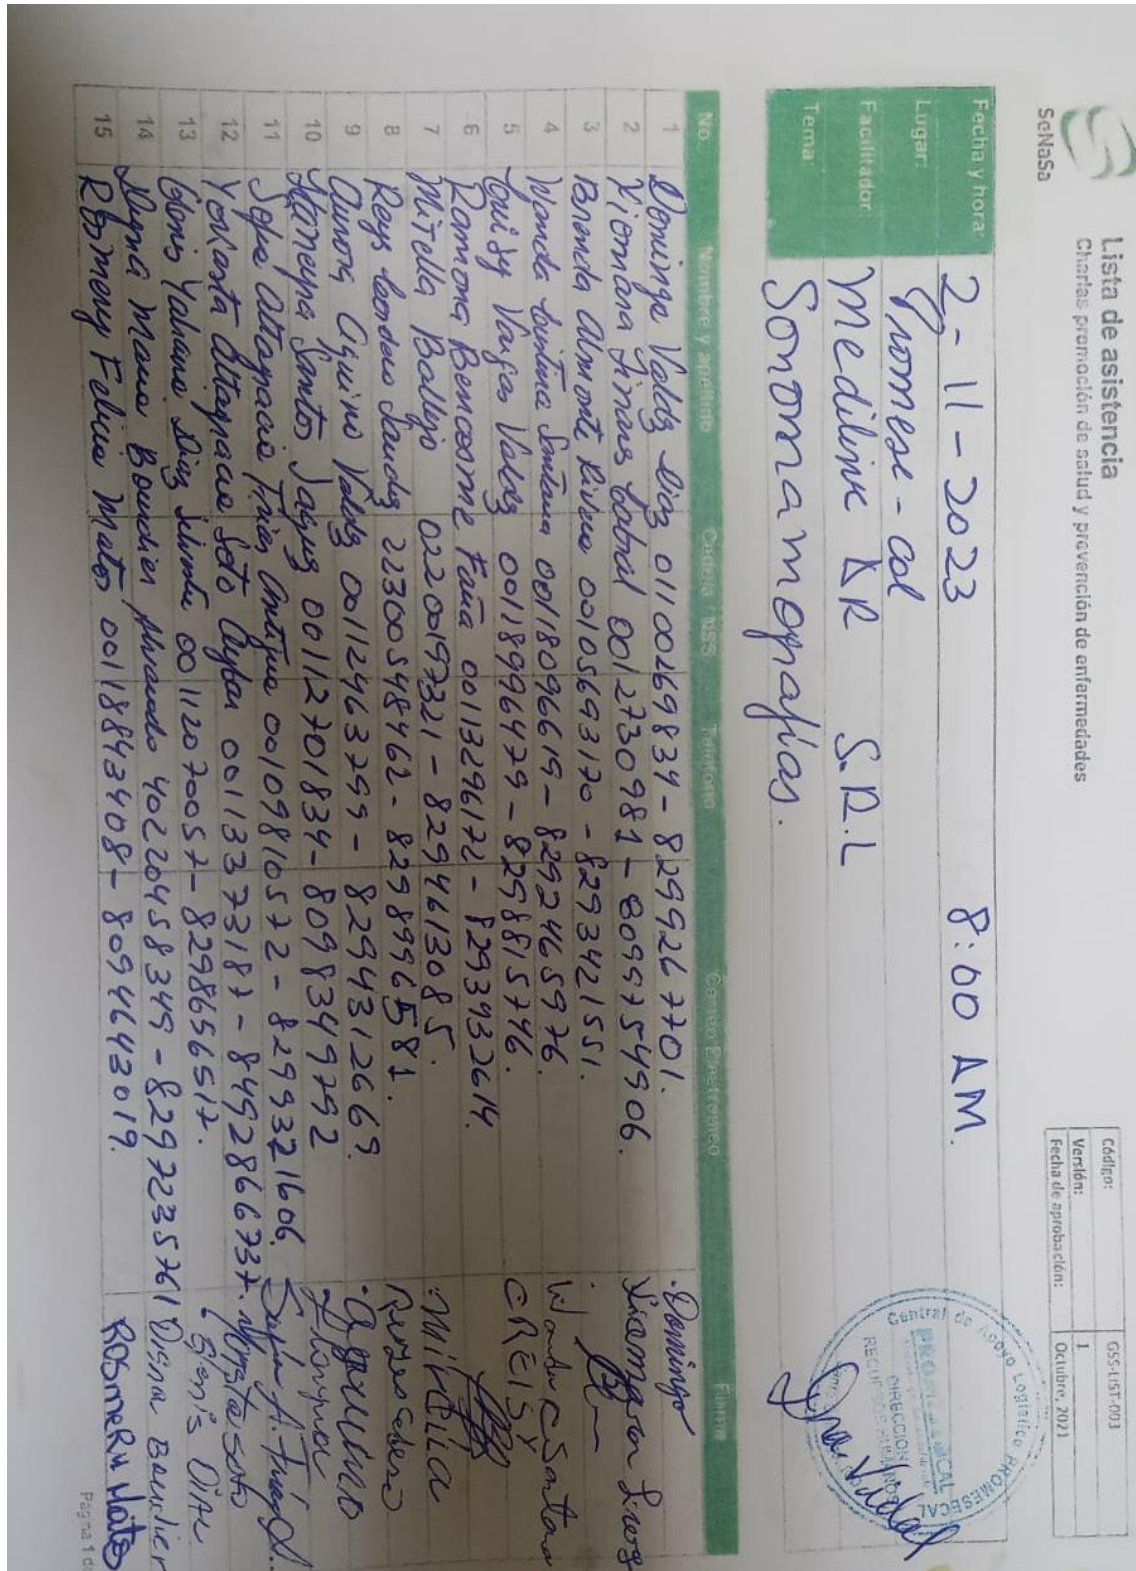 SeNaSa
Lista de asistencia
Charlas promoción de salud y prevención de enfermedades
Código: GSS-LIST-003
Versión: 1
Fecha de aprobación: Octubre, 2021
Fecha y hora: 2-11-2023 8:00 AM.
Lugar: Promese-cal
Facilitador: Medilink DR S.R.L
Tema: Sonomamografías.
Central de Apoyo Logístico PROMESECAL
DIRECCION
RECURSOS HUMANOS
No. Nombre y apellido Cedula / NSS Telefono / Correo Electronico Firma
1 Dominga Valdez Diaz 01100269834 - 8299267701. Dominga
2 Xiomara Liriano Cabral 0012730981 - 8099754906.
3 Brenda Almonte Rivera 00105693170 - 8293421551.
4 Wanda Cristina Santana 00118096619 - 8292465976. Wanda C Santana
5 Vargas Valdez 00118996479 - 8298815746. CREISY
6 Ramona Bencosme Faña 0011329617 - 8293432614.
7 Mitella Ballejo 02200197321 - 8294613085. Mitella
8 Reys Cordero Sanchez 22300548462 - 8298996581.
9 Aurora Aquino Valdez 00112463799 - 8294312669. Aquino
10 Santos 00112701834 - 8098349792
11 Sofia Altagracia Frias 00109810572 - 8299321606. Sofia A. Frias
12 Yokasta Altagracia Soto 00113373187 - 8492866737. Yokasta Soto
13 Glenis Yahaira Diaz 00112070057 - 8298656517. Glenis Diaz
14 Digna Maria Bourdier Alvarado 40220458349 - 8297235761 Digna Bourdier
15 Rosmery Feliciz Matos 00118843408 - 8094643019. Rosmery Matos
Pagina 1 de